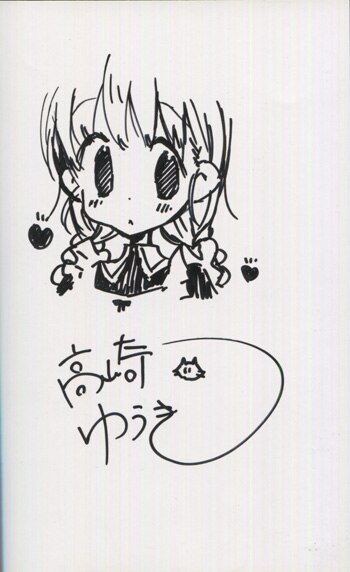 高崎
ゆうき